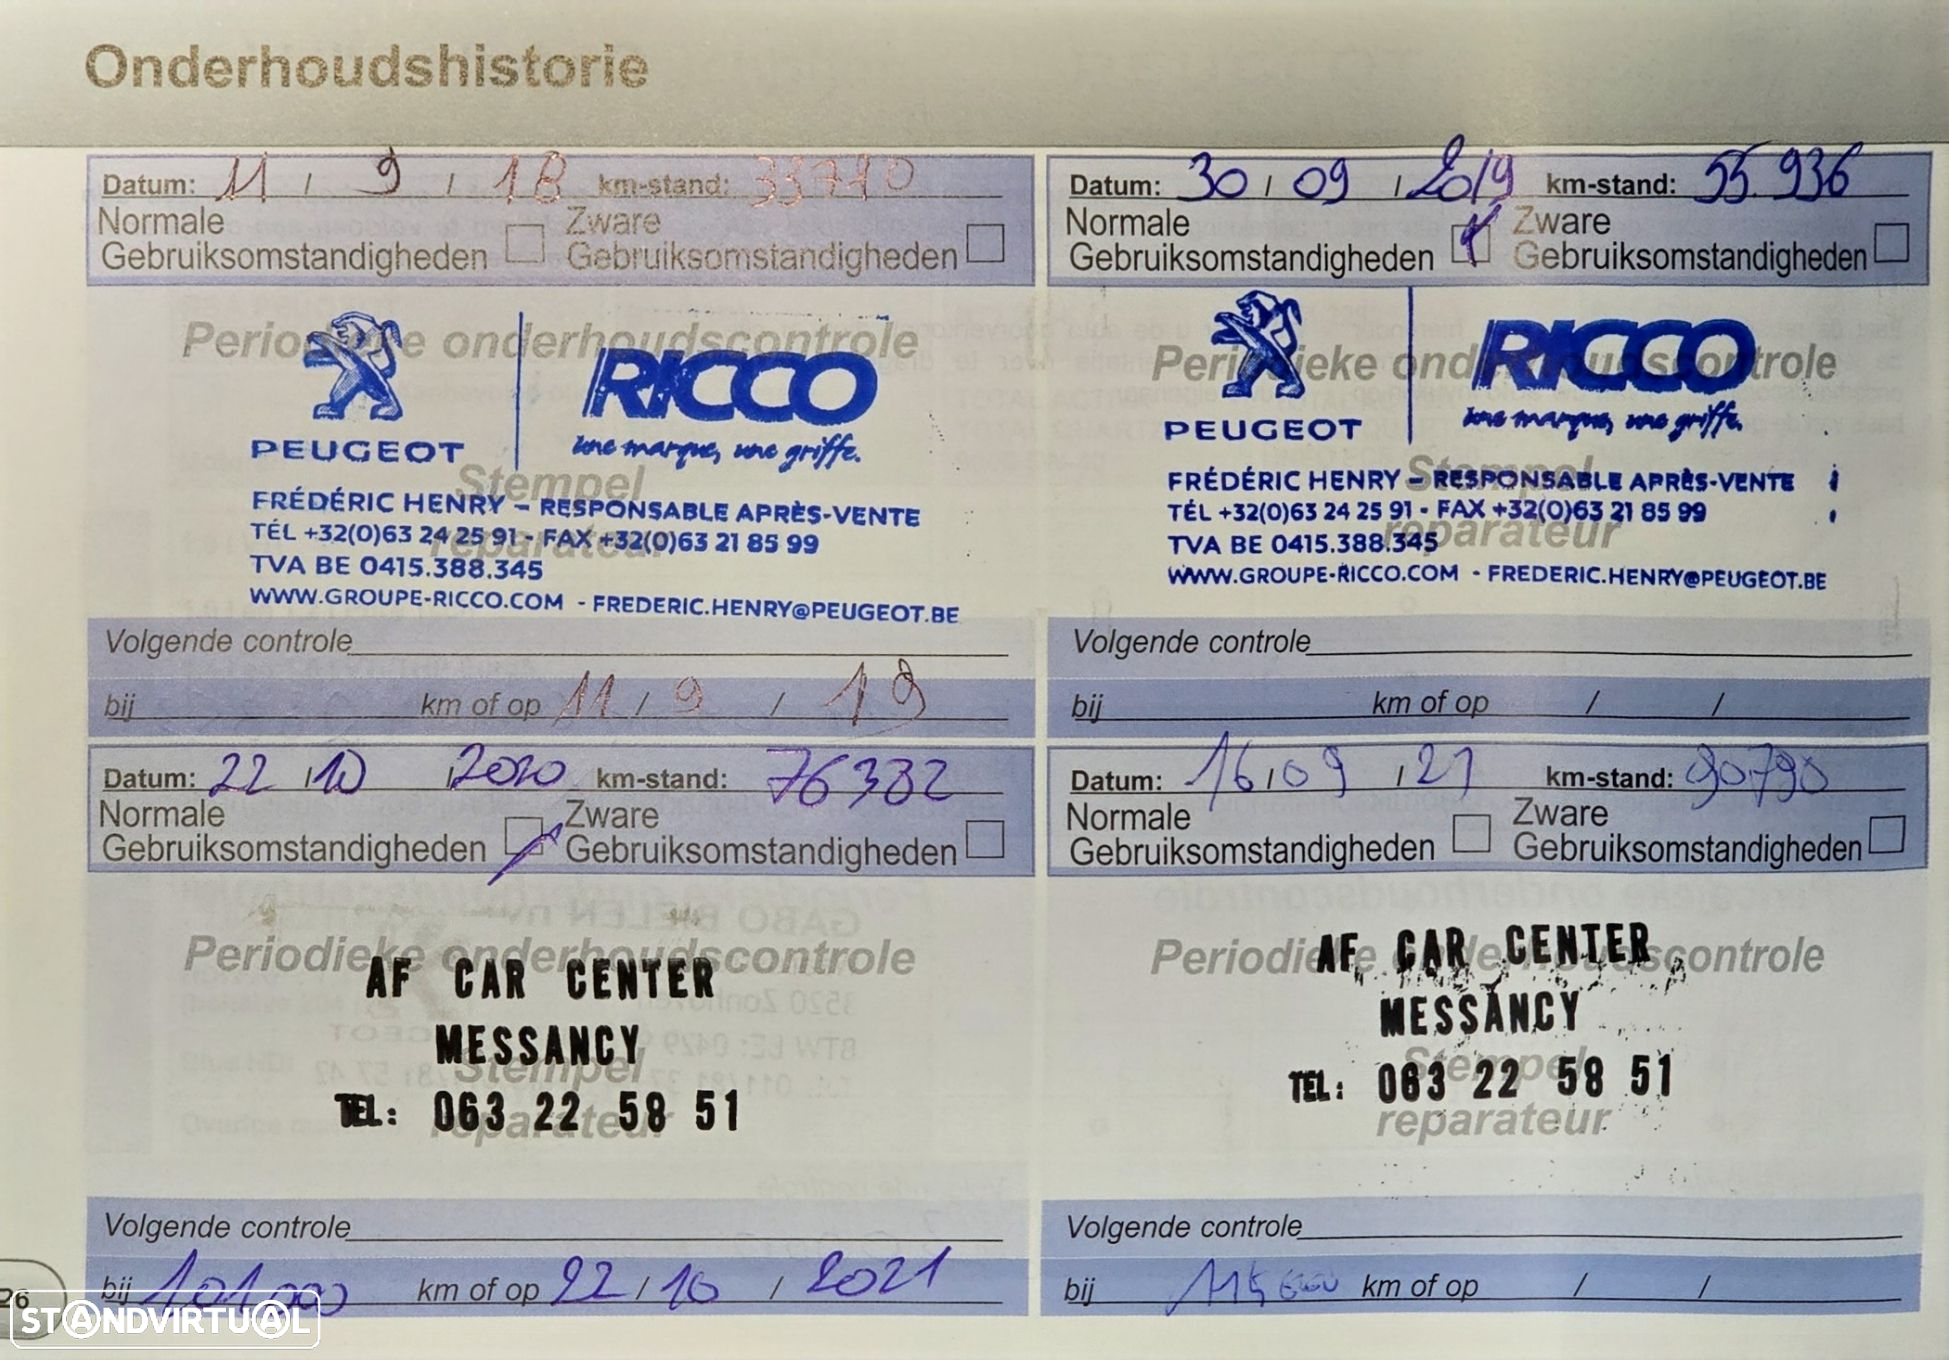 Onderhoudshistorie
Datum: 11 / 9 / 18 km-stand: 33710
Normale Gebruiksomstandigheden Zware Gebruiksomstandigheden
Periodieke onderhoudscontrole
PEUGEOT
RICCO
une marque, une griffe.
Stempel reparateur
FRÉDÉRIC HENRY - RESPONSABLE APRÈS-VENTE
TÉL +32(0)63 24 25 91 - FAX +32(0)63 21 85 99
TVA BE 0415.388.345
WWW.GROUPE-RICCO.COM - FREDERIC.HENRY@PEUGEOT.BE
Volgende controle
bij km of op 11 / 9 / 19
Datum: 30 / 09 / 2019 km-stand: 55.936
Normale Gebruiksomstandigheden Zware Gebruiksomstandigheden
Periodieke onderhoudscontrole
PEUGEOT
RICCO
une marque, une griffe.
Stempel reparateur
FRÉDÉRIC HENRY - RESPONSABLE APRÈS-VENTE
TÉL +32(0)63 24 25 91 - FAX +32(0)63 21 85 99
TVA BE 0415.388.345
WWW.GROUPE-RICCO.COM - FREDERIC.HENRY@PEUGEOT.BE
Volgende controle
bij km of op / /
Datum: 22 / 10 / 2020 km-stand: 76382
Normale Gebruiksomstandigheden Zware Gebruiksomstandigheden
Periodieke onderhoudscontrole
AF CAR CENTER
MESSANCY
Stempel reparateur
TEL: 063 22 58 51
Volgende controle
bij 101.000 km of op 22 / 10 / 2021
Datum: 16 / 09 / 21 km-stand: 90790
Normale Gebruiksomstandigheden Zware Gebruiksomstandigheden
Periodieke onderhoudscontrole
AF CAR CENTER
MESSANCY
Stempel reparateur
TEL: 063 22 58 51
Volgende controle
bij 115000 km of op / /
26
STANDVIRTUAL